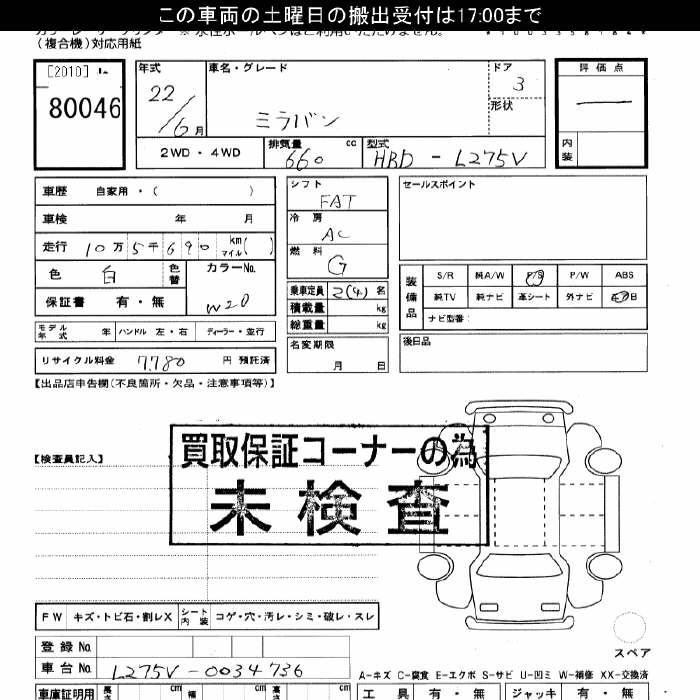 この車両の土曜日の搬出受付は17:00まで
(複合機)対応用紙
[2010]
80046
年式 22/6月
車名・グレード ミラバン
ドア 3
形状
評価点 —
内装
2WD・4WD
排気量 660 cc
型式 HBD - L275V
車歴 自家用・( )
車検 年 月
走行 10万5千690 km マイル( )
色 白 色替
カラーNo. W20
保証書 有・無
モデル年式 年 ハンドル 左・右 ディーラー・並行
リサイクル料金 7780 円 預託済
シフト FAT
冷房 AC
燃料 G
乗車定員 2(4) 名
積載量 kg
総重量 kg
名変期限 月 日
セールスポイント
装備品
S/R 純A/W P/S P/W ABS
純TV 純ナビ 革シート 外ナビ
ナビ型番:
後日品
【出品店申告欄(不良箇所・欠品・注意事項等)】
【検査員記入】
買取保証コーナーの為
未検査
FW キズ・トビ石・割レX シート内装 コゲ・穴・汚レ・シミ・破レ・スレ
スペア
登録No.
車台No. L275V-0034736
A-キズ C-腐食 E-エクボ S-サビ U-凹ミ W-補修 XX-交換済
車庫証明用 長さ cm 幅 cm 高さ cm
工具 有・無 ジャッキ 有・無